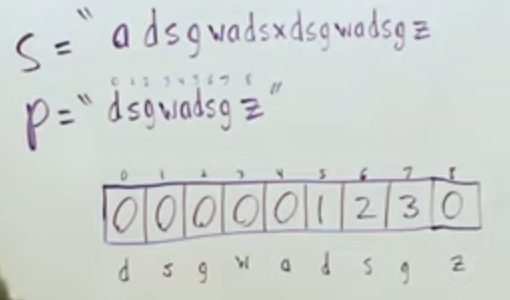 S = " a d s g w a d s x d s g w a d s g z
0 1 2 3 4 5 6 7 8
p = " d s g w a d s g z "
0 1 2 3 4 5 6 7 8
0 0 0 0 0 1 2 3 0
d s g w a d s g z